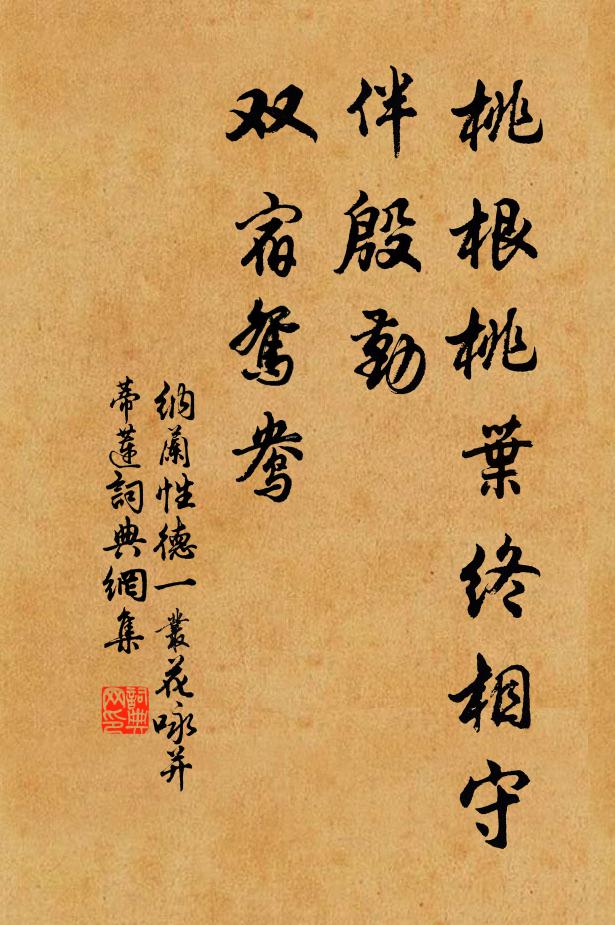 桃根桃葉终相守
伴殷勤
双宿鸳鸯
纳蘭性德一叢花咏并
蒂蓮詞典網集
詞典
网印